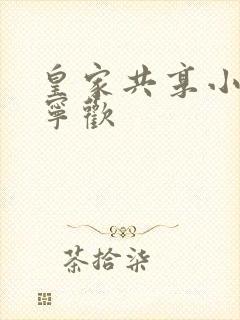 皇家共享小
寧歡
茶拾柒